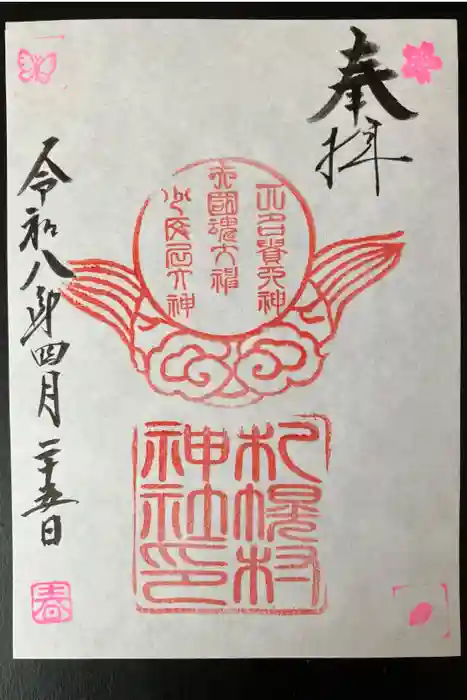 奉拝
大名貴大神
大國魂大神
少彦名大神
札幌村
神社印
令和八年四月二十五日
春